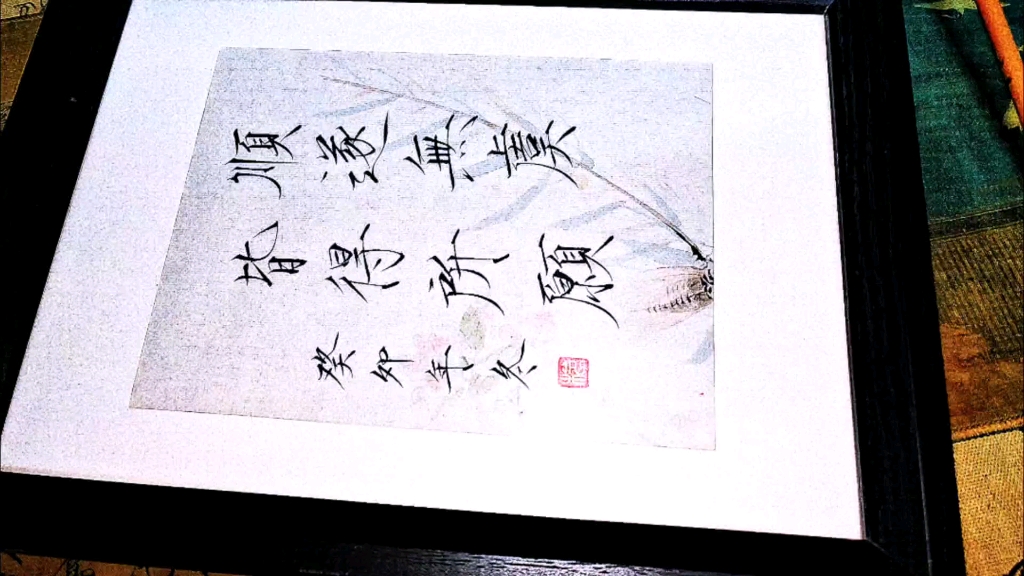 順遂無虞
皆得所願
癸卯年冬